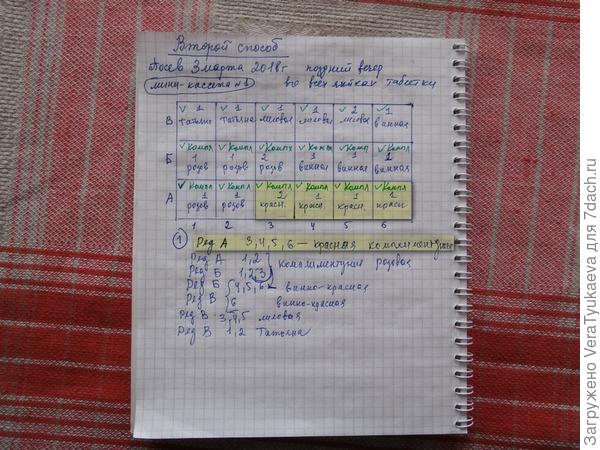 Второй способ
Посев 3 марта 2018г поздний вечер
мини-кассета №1 во всех ячейках таблетки
В ✓ 1 ✓ 1 ✓ 1 ✓ 1 ✓ 2 ✓ 1
Татьяна Татьяна лиловая лиловы лиловы винная
✓ Компл ✓ Компл ✓ Компл ✓ Компл ✓ Компл ✓ Компл
Б 1 1 2 1 1 1
розов розов розов винная винная винная
А ✓ Компл ✓ Компл ✓ Компл ✓ Компл ✓ Компл ✓ Компл
1 1 2 1 1 1
розов розов красн. красн. красн. красн
1 2 3 4 5 6
① Ряд А 3,4,5,6 — красная комплиментуния
Ряд А 1,2
Ряд Б 1,2,3 комплиментуния розовая
Ряд Б 4,5,6 — винно-красная
Ряд В 6 винно-красная
Ряд В 3,4,5 лиловая
Ряд В 1,2 Татьяна
Загружено VeraTyukaeva для 7dach.ru